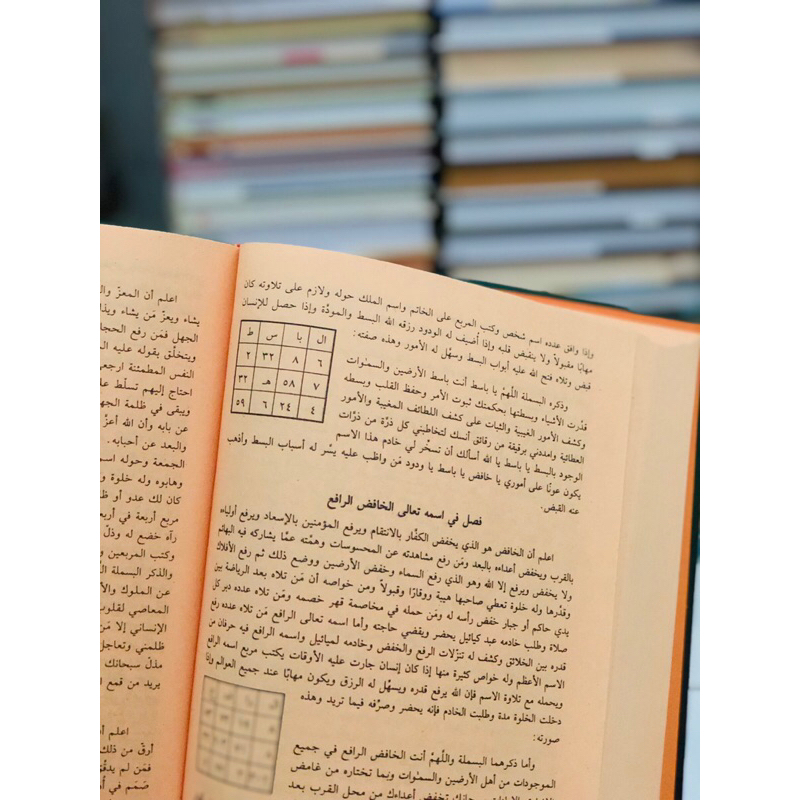 وإذا وافق عدده اسم شخص وكتب المربع على الخاتم واسم الملك حوله ولازم على تلاوته كان
مهابًا مقبولاً ولا ينقبض قلبه وإذا أضيف له الودود رزقه الله البسط والمودّة وإذا حصل للإنسان
قبض وتلاه فتح الله عليه أبواب البسط وسهّل له الأمور وهذه صفته:
ال با س ط
٦ ٨ ٣٢ ٢
٧ ٥٨ هـ ٣٢
٤ ٢٤ ٦ ٥٩
وذكره البسملة اللّهمّ يا باسط أنت باسط الأرضين والسمٰوات
قدّرت الأشياء وبسطتها بحكمتك ثبوت الأمر وحفظ القلب وبسطه
وكشف الأمور الغيبية والثبات على كشف اللطائف المغيبة والأمور
العطائية وامددني برقيقة من رقائق أنسك لتخاطبني كل ذرّة من ذرّات
الوجود بالبسط يا باسط يا الله أسألك أن تسخّر لي خادم هذا الاسم
يكون عونًا على أموري يا خافض يا باسط يا ودود مَن واظب عليه يسّر له أسباب البسط وأذهب
عنه القبض.
فصل في اسمه تعالى الخافض الرافع
اعلم أن الخافض هو الذي يخفض الكفّار بالانتقام ويرفع المؤمنين بالإسعاد ويرفع أولياءه
بالقرب ويخفض أعداءه بالبعد ومَن رفع مشاهدته عن المحسوسات وهمّته عمّا يشاركه فيه البهائم
ولا يخفض ويرفع إلا الله وهو الذي رفع السماء وخفض الأرضين ووضع ذلك ثم رفع الأفلاك
وقدّرها وله خلوة تعطي صاحبها هيبة ووقارًا وقبولاً ومن خواصه أن مَن تلاه بعد الرياضة بين
يدي حاكم أو جبار خفض رأسه له ومَن حمله في مخاصمة قهر خصمه ومَن تلاه عدده دبر كل
صلاة وطلب خادمه عبد كيائيل يحضر ويقضي حاجته وأما اسمه تعالى الرافع مَن تلاه عدده رفع
قدره بين الخلائق وكشف له تنزّلات الرفع والخفض وخادمه لميائيل واسمه الرافع فيه حرفان من
الاسم الأعظم وله خواص كثيرة منها إذا كان إنسان جارت عليه الأوقات يكتب مربع اسمه الرافع
ويحمله مع تلاوة الاسم فإن الله يرفع قدره ويسهّل له الرزق ويكون مهابًا عند جميع العوالم وإذا
دخلت الخلوة مدة وطلبت الخادم فإنه يحضر وصرّفه فيما تريد وهذه
صورته:
وأما ذكرهما البسملة واللّهمّ أنت الخافض الرافع في جميع
الموجودات من أهل الأرضين والسمٰوات وبما تختاره من غامض
تخفض أعداءك من محل القرب بعد
اعلم أن المعزّ وال
يشاء ويعزّ مَن يشاء ويذ
الجهل فمَن رفع الحجا
ويتخلّق بقوله عليه ال
النفس المطمئنة ارجعي
احتاج إليهم تسلّط عا
ويبقى في ظلمة الجه
عن بابه وأن الله أعزّ
والبعد عن أحبابه.
الجمعة وحوله اسم
وهابوه وله خلوة و
كان لك عدو أو ظ
مربع أربعة في أربعة
رآه خضع له وذلّ
وكتب المربعين و
والذكر البسملة اللّ
عن الملوك والأ
المعاصي لقلوب
الإنساني إلا مَن
ظلمتي وتعاجل
مذلّ سبحانك
يريد من قمع ال
اعلم أ
أرقّ من ذلك
فمَن لم يدقّق
صمّم في أ